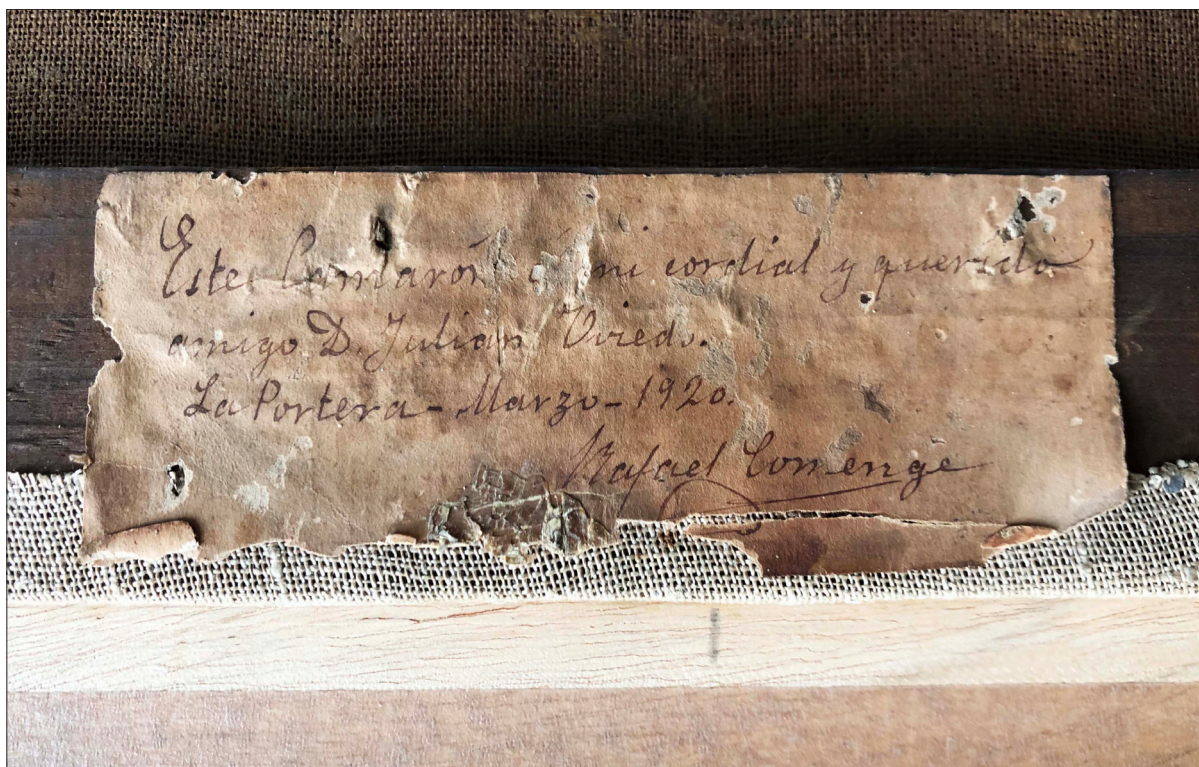 Este Camarón á mi cordial y querido
amigo D. Julian Oviedo.
La Portera - Marzo - 1920.
Rafael Comenge